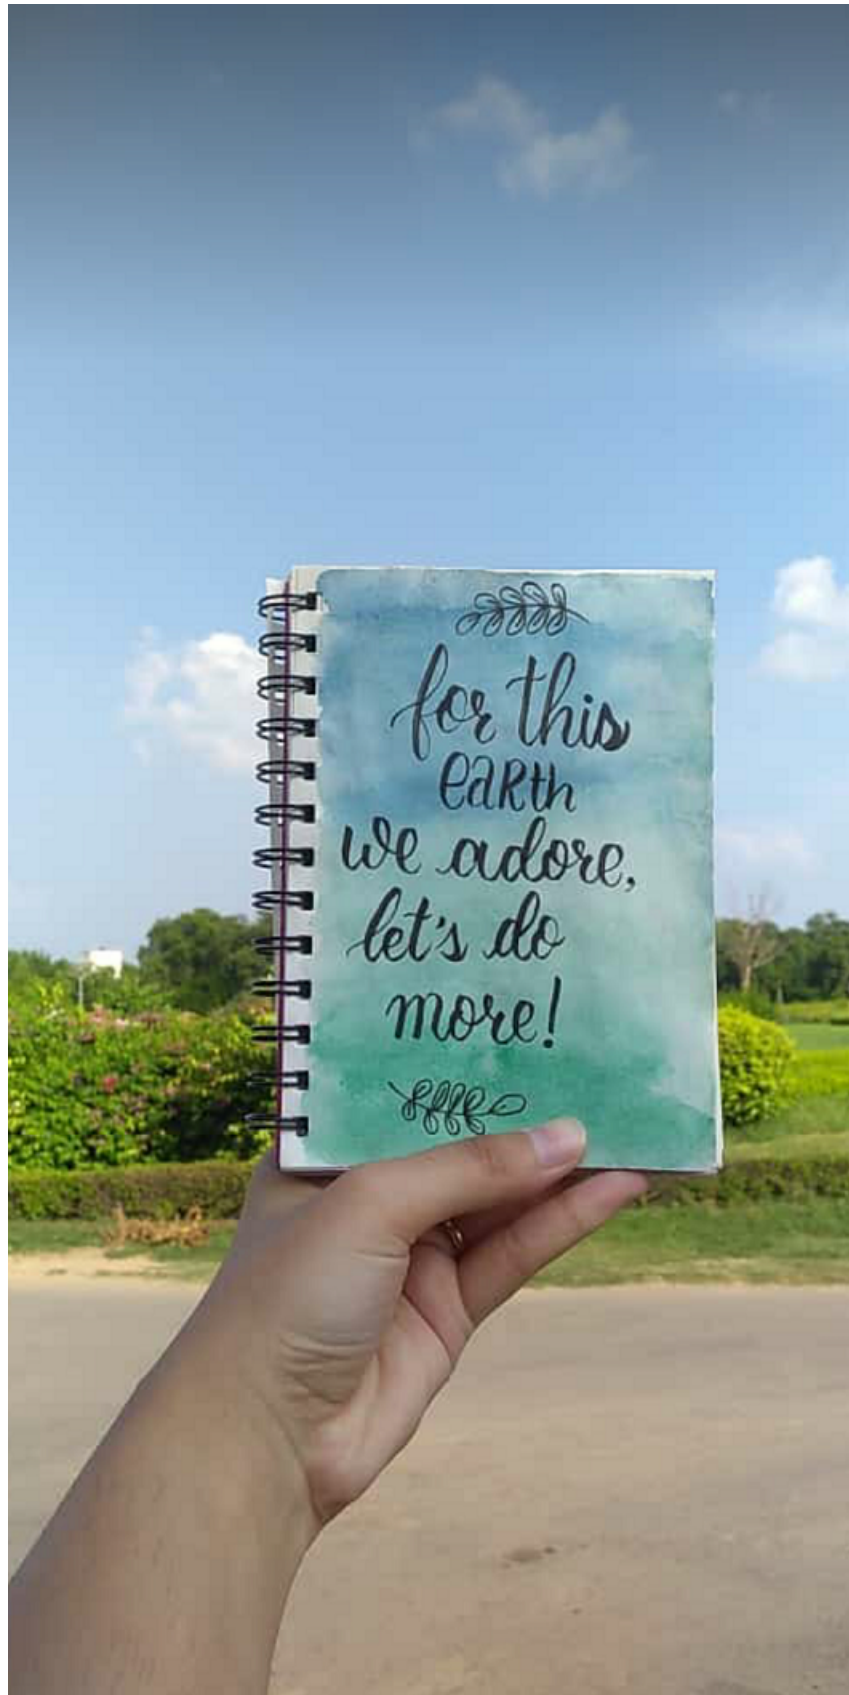 for this
earth
we adore,
let's do
more!